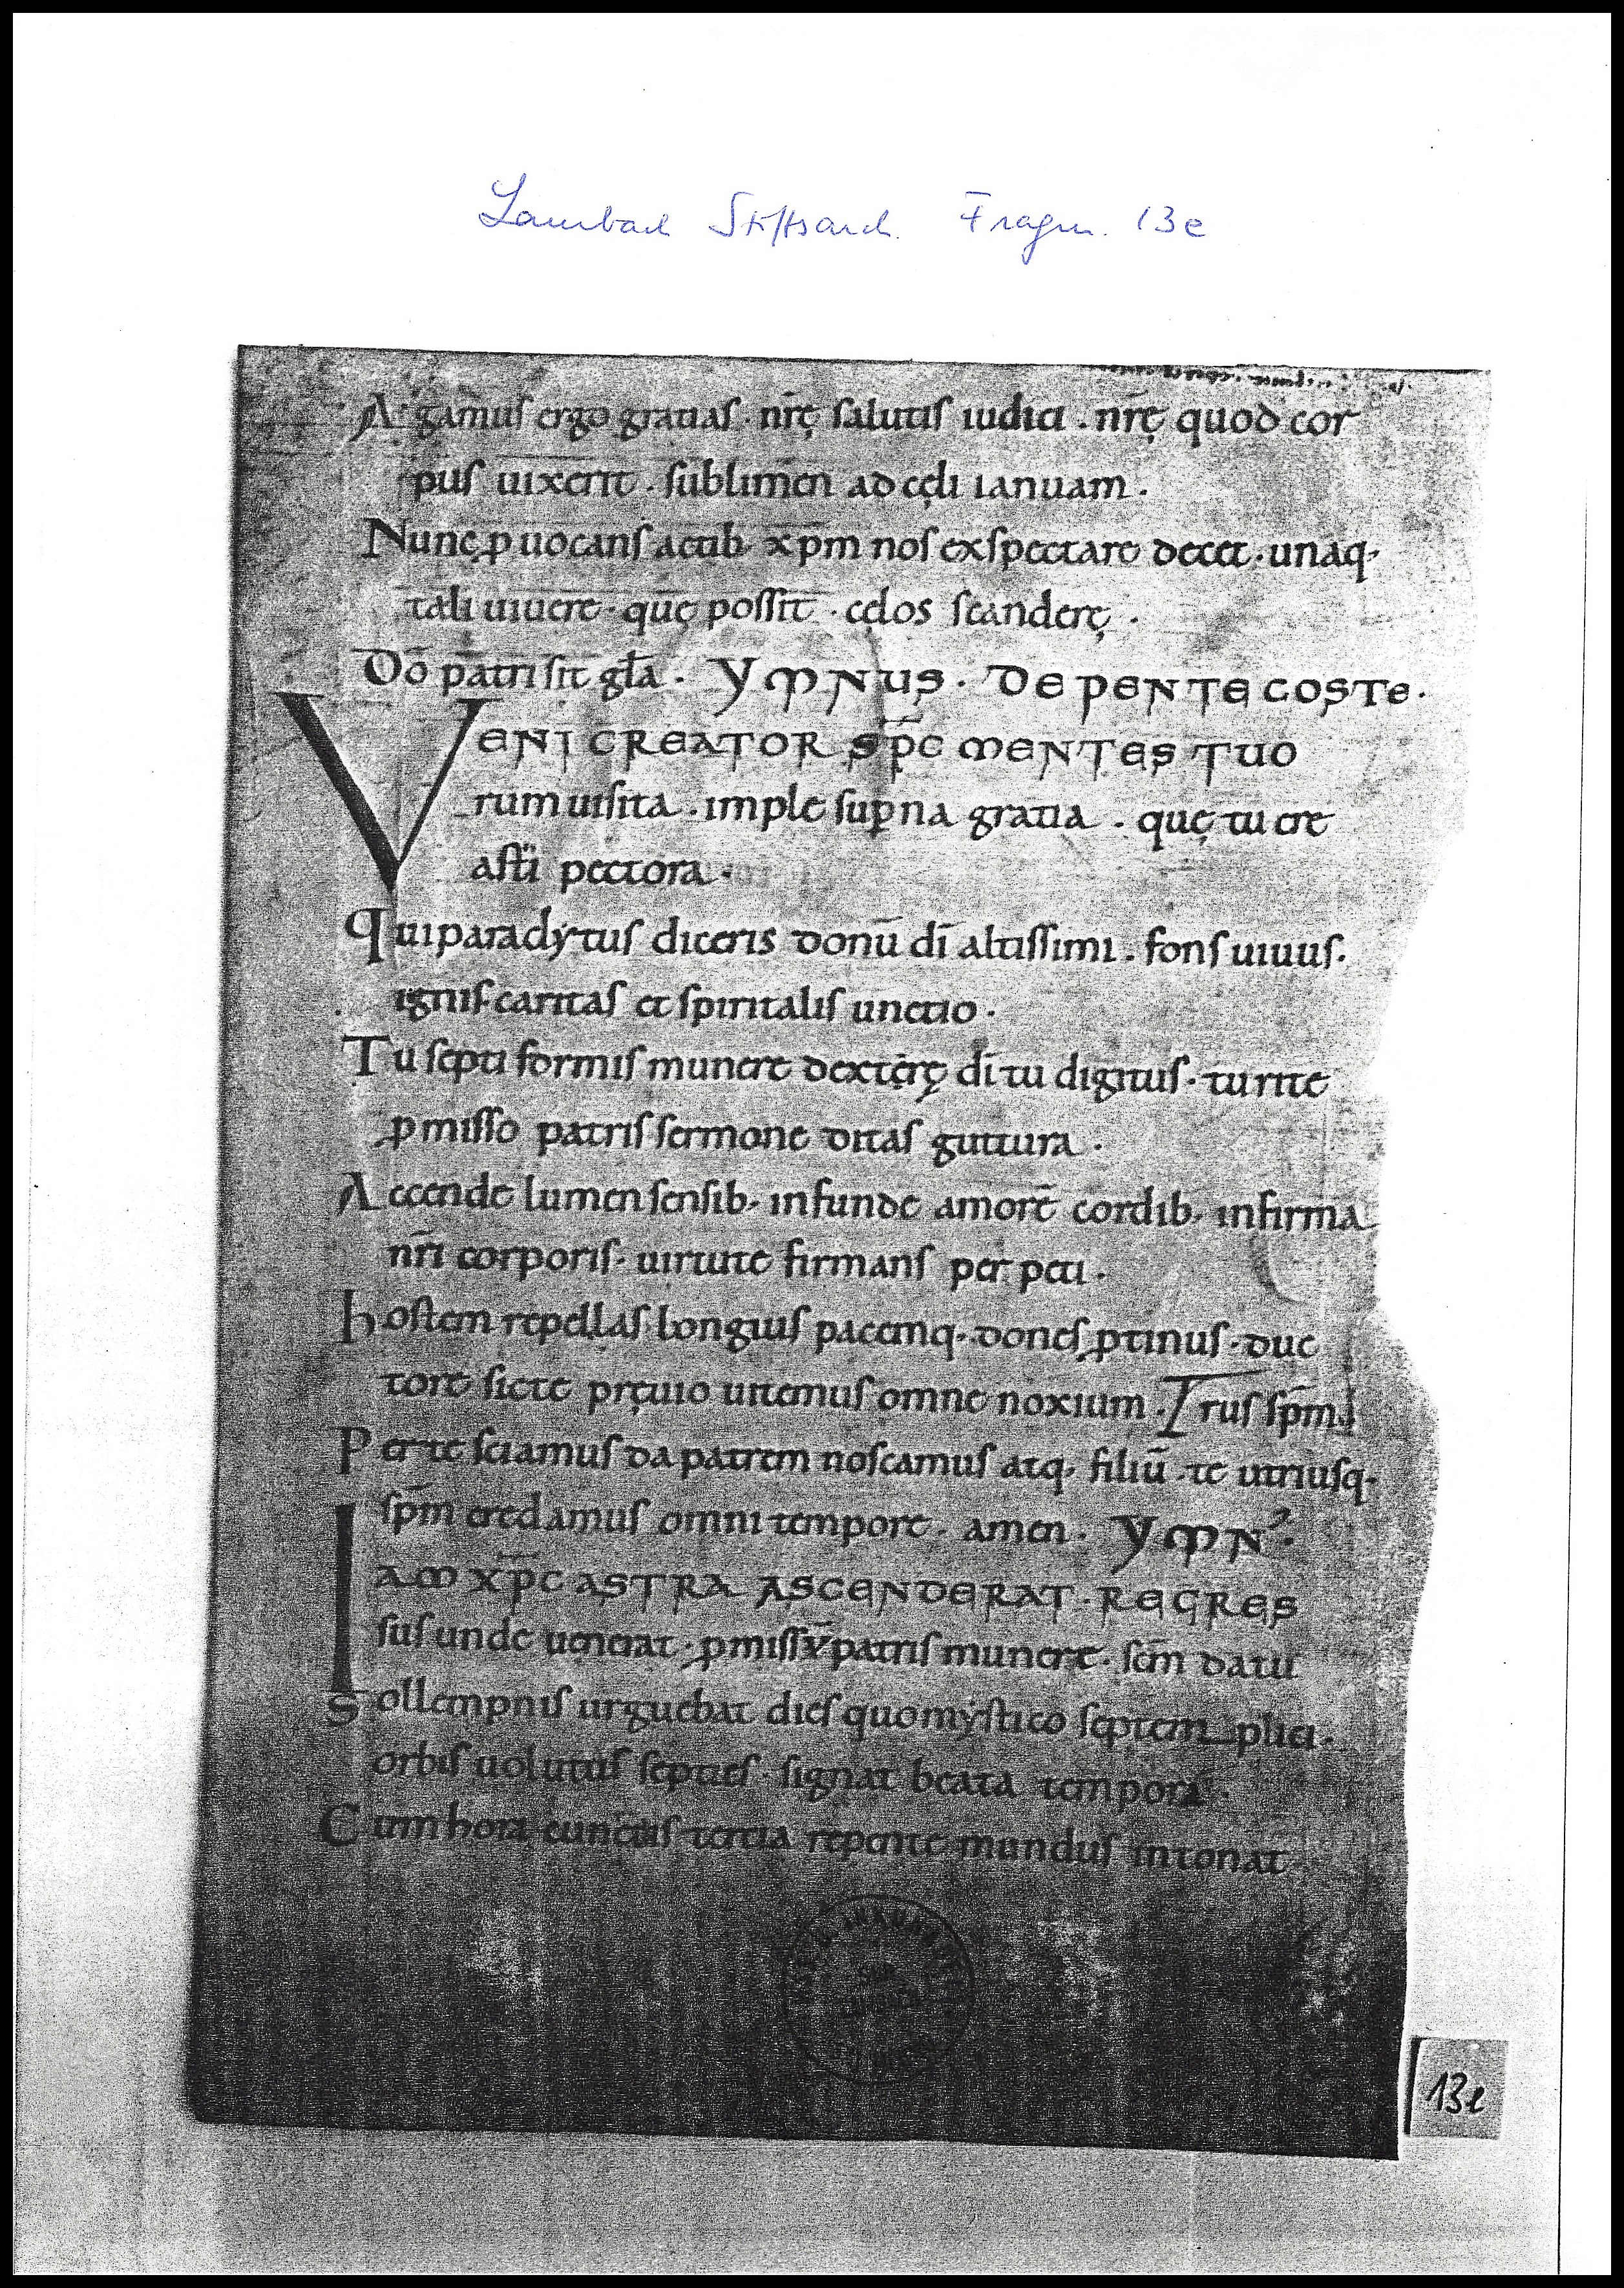 Lambach Stiftsarch. Fragm. 13e
Agamus ergo gratias · nr̄ę salutis iudici · nr̄ę quod cor
pus uixerit · sublimen ad cęli ianuam ·
Nunc ꝓuocans actib· xp̄m nos exspectare decet · unaq·
tali uiuere · quę possit · cęlos scanderę ·
Dō patri sit gl̄a · YMNUS · DE PENTECOSTE ·
VENI CREATOR SP̄C MENTES TUO
rum uisita · imple suꝑna gratia · quę tu cre
asti pectora ·
Qui paraclytus diceris donū dī altissimi · fons uiuus ·
ignis caritas et spiritalis unctio ·
Tu septiformis munere dexterę dī tu digitus · tu rite
ꝓmisso patris sermone ditas guttura ·
Accende lumen sensib· infunde amorē cordib· infirma
nr̄i corporis · uirtute firmans perpeti ·
Hostem repellas longius pacemq· dones ꝓtinus · duc
tore sicte pręuio uitemus omne noxium · Trus sp̄m
Per te sciamus da patrem noscamus atq· filiū · te utriusq·
sp̄m credamus omni tempore · amen · YMN᾿ ·
IAM XP̄C ASTRA ASCENDERAT · REGRES
sus unde uenerat · ꝓmissū patris munere · sc̄m datu
Sollempnis urguebat dies quo mystico septemplici ·
orbis uolutus septies · signat beata tempora ·
Cum hora cunctis tertia repente mundus intonat
13e